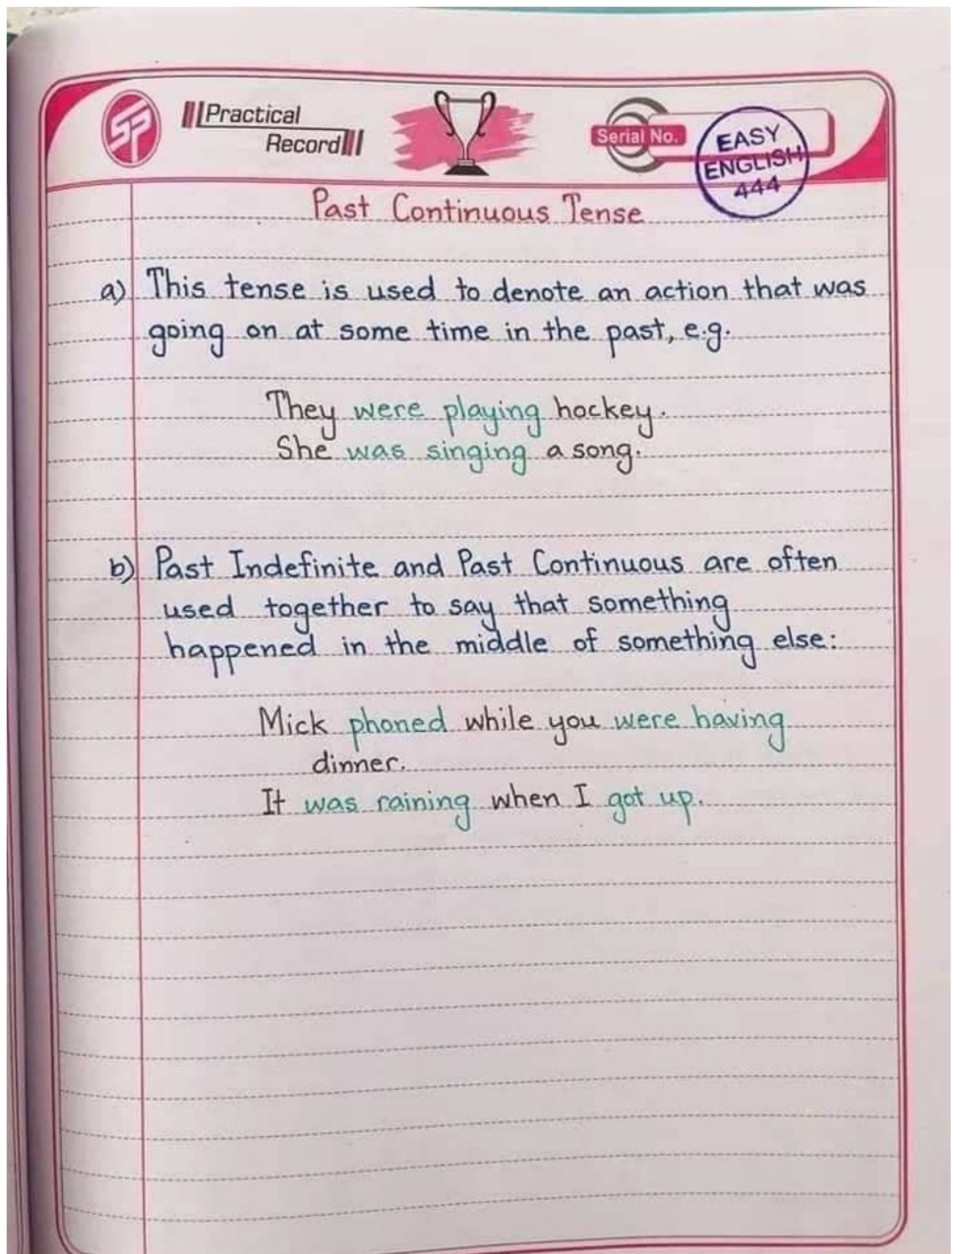 SP
Practical
Record
Serial No.
EASY
ENGLISH
444
Past Continuous Tense
a) This tense is used to denote an action that was
going on at some time in the past, e.g.
They were playing hockey.
She was singing a song.
b) Past Indefinite and Past Continuous are often
used together to say that something
happened in the middle of something else:
Mick phoned while you were having
dinner.
It was raining when I got up.